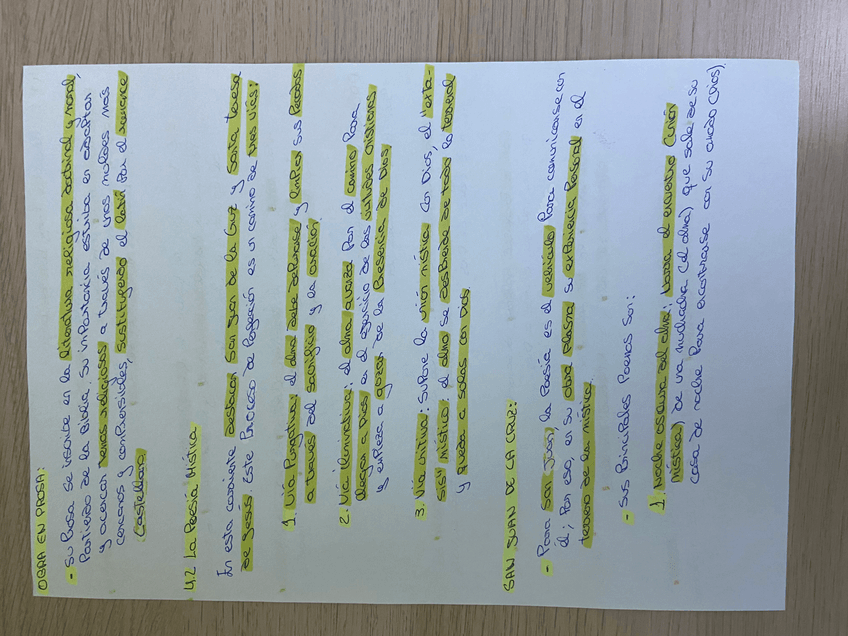 OBRA EN PROSA:
- Su Prosa se inscribe en la literatura religiosa doctrinal y moral,
Partiendo de la Biblia. Su importancia estriba en adaptar
y acercar temas religiosos a través de unos moldes más
cercanos y comprensibles, sustituyendo el latín Por el romance
castellano.
4.2 La Poesía Mística
En esta corriente destacan San Juan de la Cruz y Santa Teresa
de Jesús. Este Proceso de Perfección es un camino de tres vías:
1. Vía Purgativa: el alma debe liberarse y limpiar sus Pecados
a través del sacrificio y la oración
2. Vía iluminativa: el alma avanza Por el camino Para
llegar a Dios en el ejercicio de las virtudes cristianas
y empieza a gozar de la Presencia de Dios.
3. Vía unitiva: supone la unión mística con Dios, el "éxta-
sis" místico: el alma se desprende de todo lo terrenal
y queda a solas con Dios.
SAN JUAN DE LA CRUZ:
- Para San Juan, la Poesía es el vehículo Para comunicarse con
él; Por eso, en su obra plasma su experiencia Personal en el
terreno de la mística.
- Sus Principales Poemas son:
1. Noche oscura del alma: narra el encuentro (unión
mística) de una muchacha (el alma) que sale de su
casa de noche Para encontrarse con su amado (Dios).